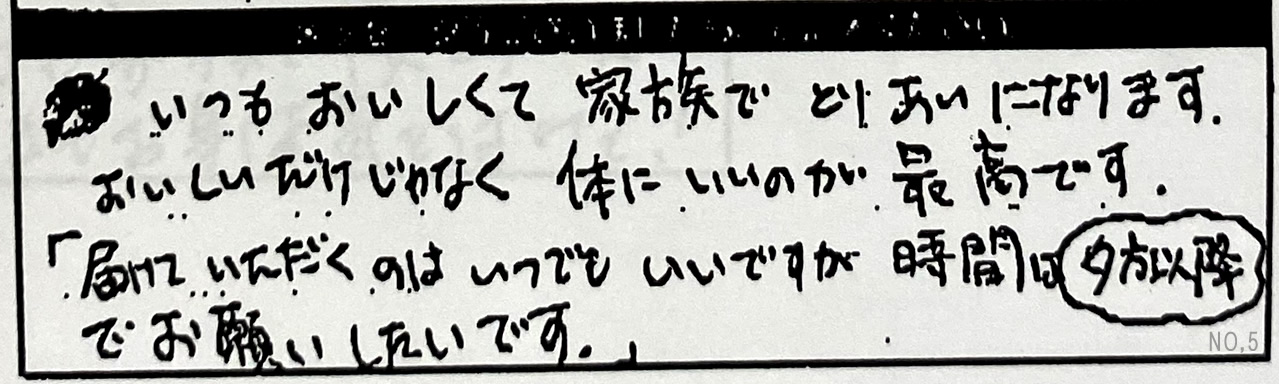 いつもおいしくて 家族で とりあいになります.
おいしいだけじゃなく 体に いいのが 最高です.
「届けて いただくのは いつでも いいですが 時間は 夕方以降
でお願いしたいです.」
NO,5